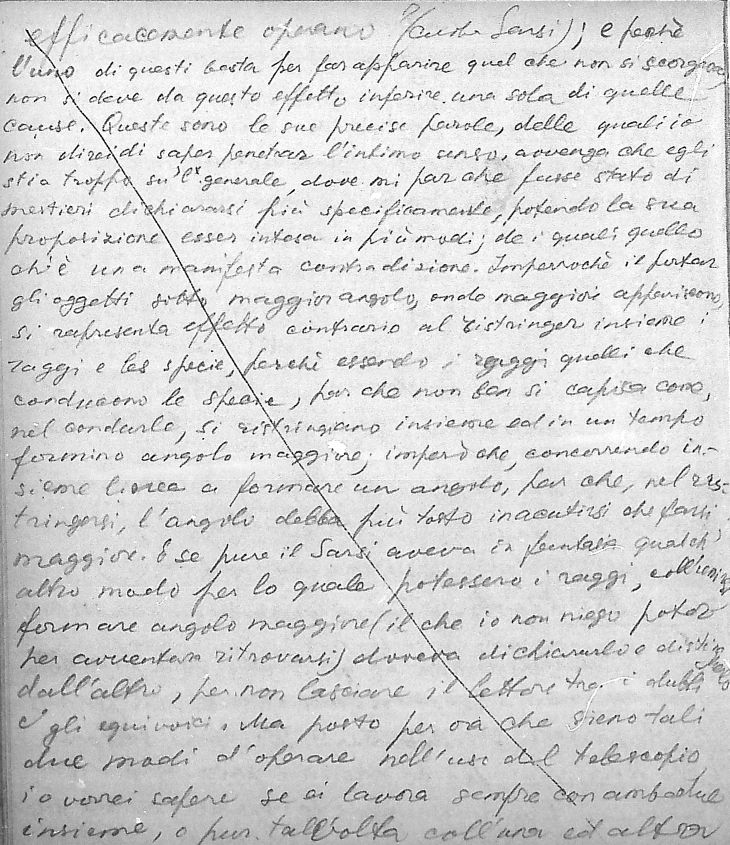 efficacemente operano (dice il Sarsi); e perchè
l'uno di questi basta per far apparire quel che non si scorgeva,
non si deve da questo effetto inferire una sola di quelle
cause. Queste sono le sue precise parole, delle quali io
non direi di saper penetrar l'intimo senso, avvenga che egli
stia troppo su 'l generale, dove mi par che fusse stato di
mestieri dichiararsi più specificamente, potendo la sua
proposizione esser intesa in più modi; de i quali quello
ch'è una manifesta contradizione. Imperrochè il portar
gli oggetti sotto maggior angolo, onde maggiori appariscono,
si rapresenta effetto contrario al ristringer insieme i
raggi e les specie, perchè essendo i raggi quelli che
conducono le specie, par che non ben si capisca come,
nel condurle, si ristringano insieme ed in un tempo
formino angolo maggiore; imperò che, concorrendo in-
sieme linee a formare un angolo, par che, nel ris-
tringersi, l'angolo debba più tosto inacutirsi che farsi
maggiore. E se pure il Sarsi aveva in fantasia qualch'
altro modo per lo quale potessero i raggi, coll'unirsi
formare angolo maggiore (il che io non niego poter
per avventura ritrovarsi) doveva dichiararlo e distinguerlo
dall'altro, per non lasciare il lettore tra i dubbi
e gli equivoci. Ma posto per ora che sieno tali
due modi d'operare nell'uso del telescopio
io vorrei sapere se ei lavora sempre con ambedue
insieme, o pur talvolta coll'una ed altra